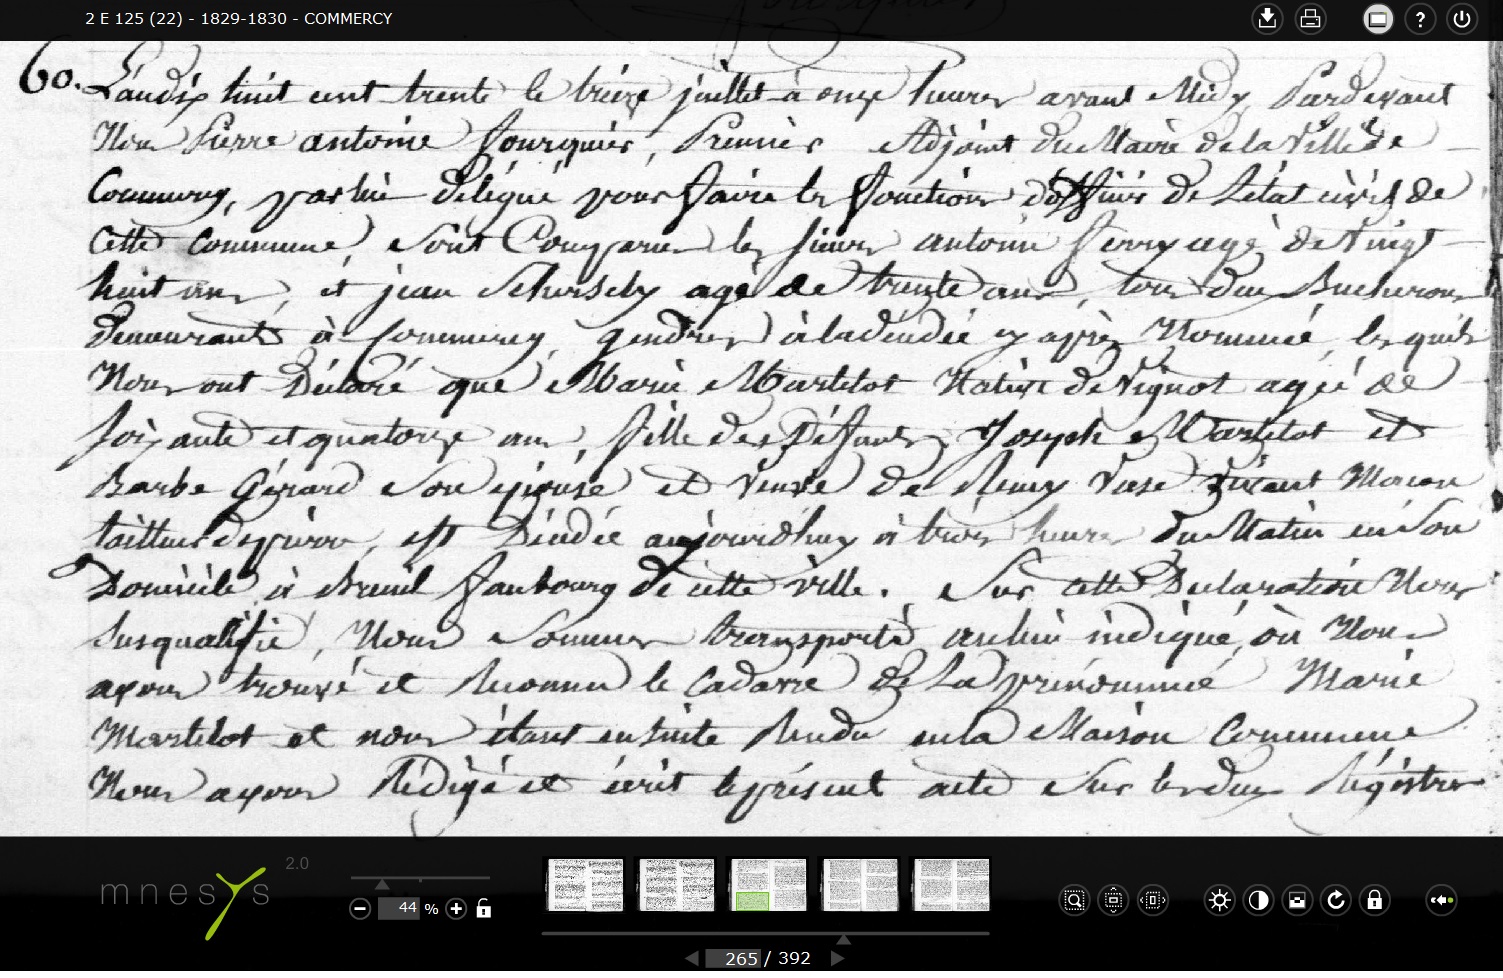 2 E 125 (22) - 1829-1830 - COMMERCY
60. L'an dix huit cent trente le treize juillet à onze heures avant Midy, Pardevant
Nous Pierre antoine fourquier, Premier Adjoint du Maire de la Ville de
Commercy, par lui délégué pour faire les fonctions d'officier de L'état civil de
Cette Commune, Sont Comparus les sieurs antoine ferry agé de Vingt
huit ans, et jean agé de trente ans, tous deux Bucherons
demeurants à Commercy, gendres à la dédée cy après Nommée, lesquels
Nous ont Déclaré que Marie Martelot Native de Vignot agée de
soixante et quatorze ans, fille des Défunts Joseph Martelot et
Barbe Gérard Son épouse et Veuve de Remy vivant Macon
tailleur de pierre, est Dédée aujourd'huy à trois heures du Matin en Son
Domicile à Breuil faubourg de cette ville. Sur cette Déclaration Nous
Susqualifié, Nous Sommes transporté au lieu indiqué, où Nous
ayons trouvé et Reconnu le Cadavre de La prénommée Marie
Martelot et nous étant ensuite Rendu en la Maison Commune
Nous ayons Rédigé et écrit le présent acte Sur les deux Régistres
mnesys 2.0
44 %
265 / 392